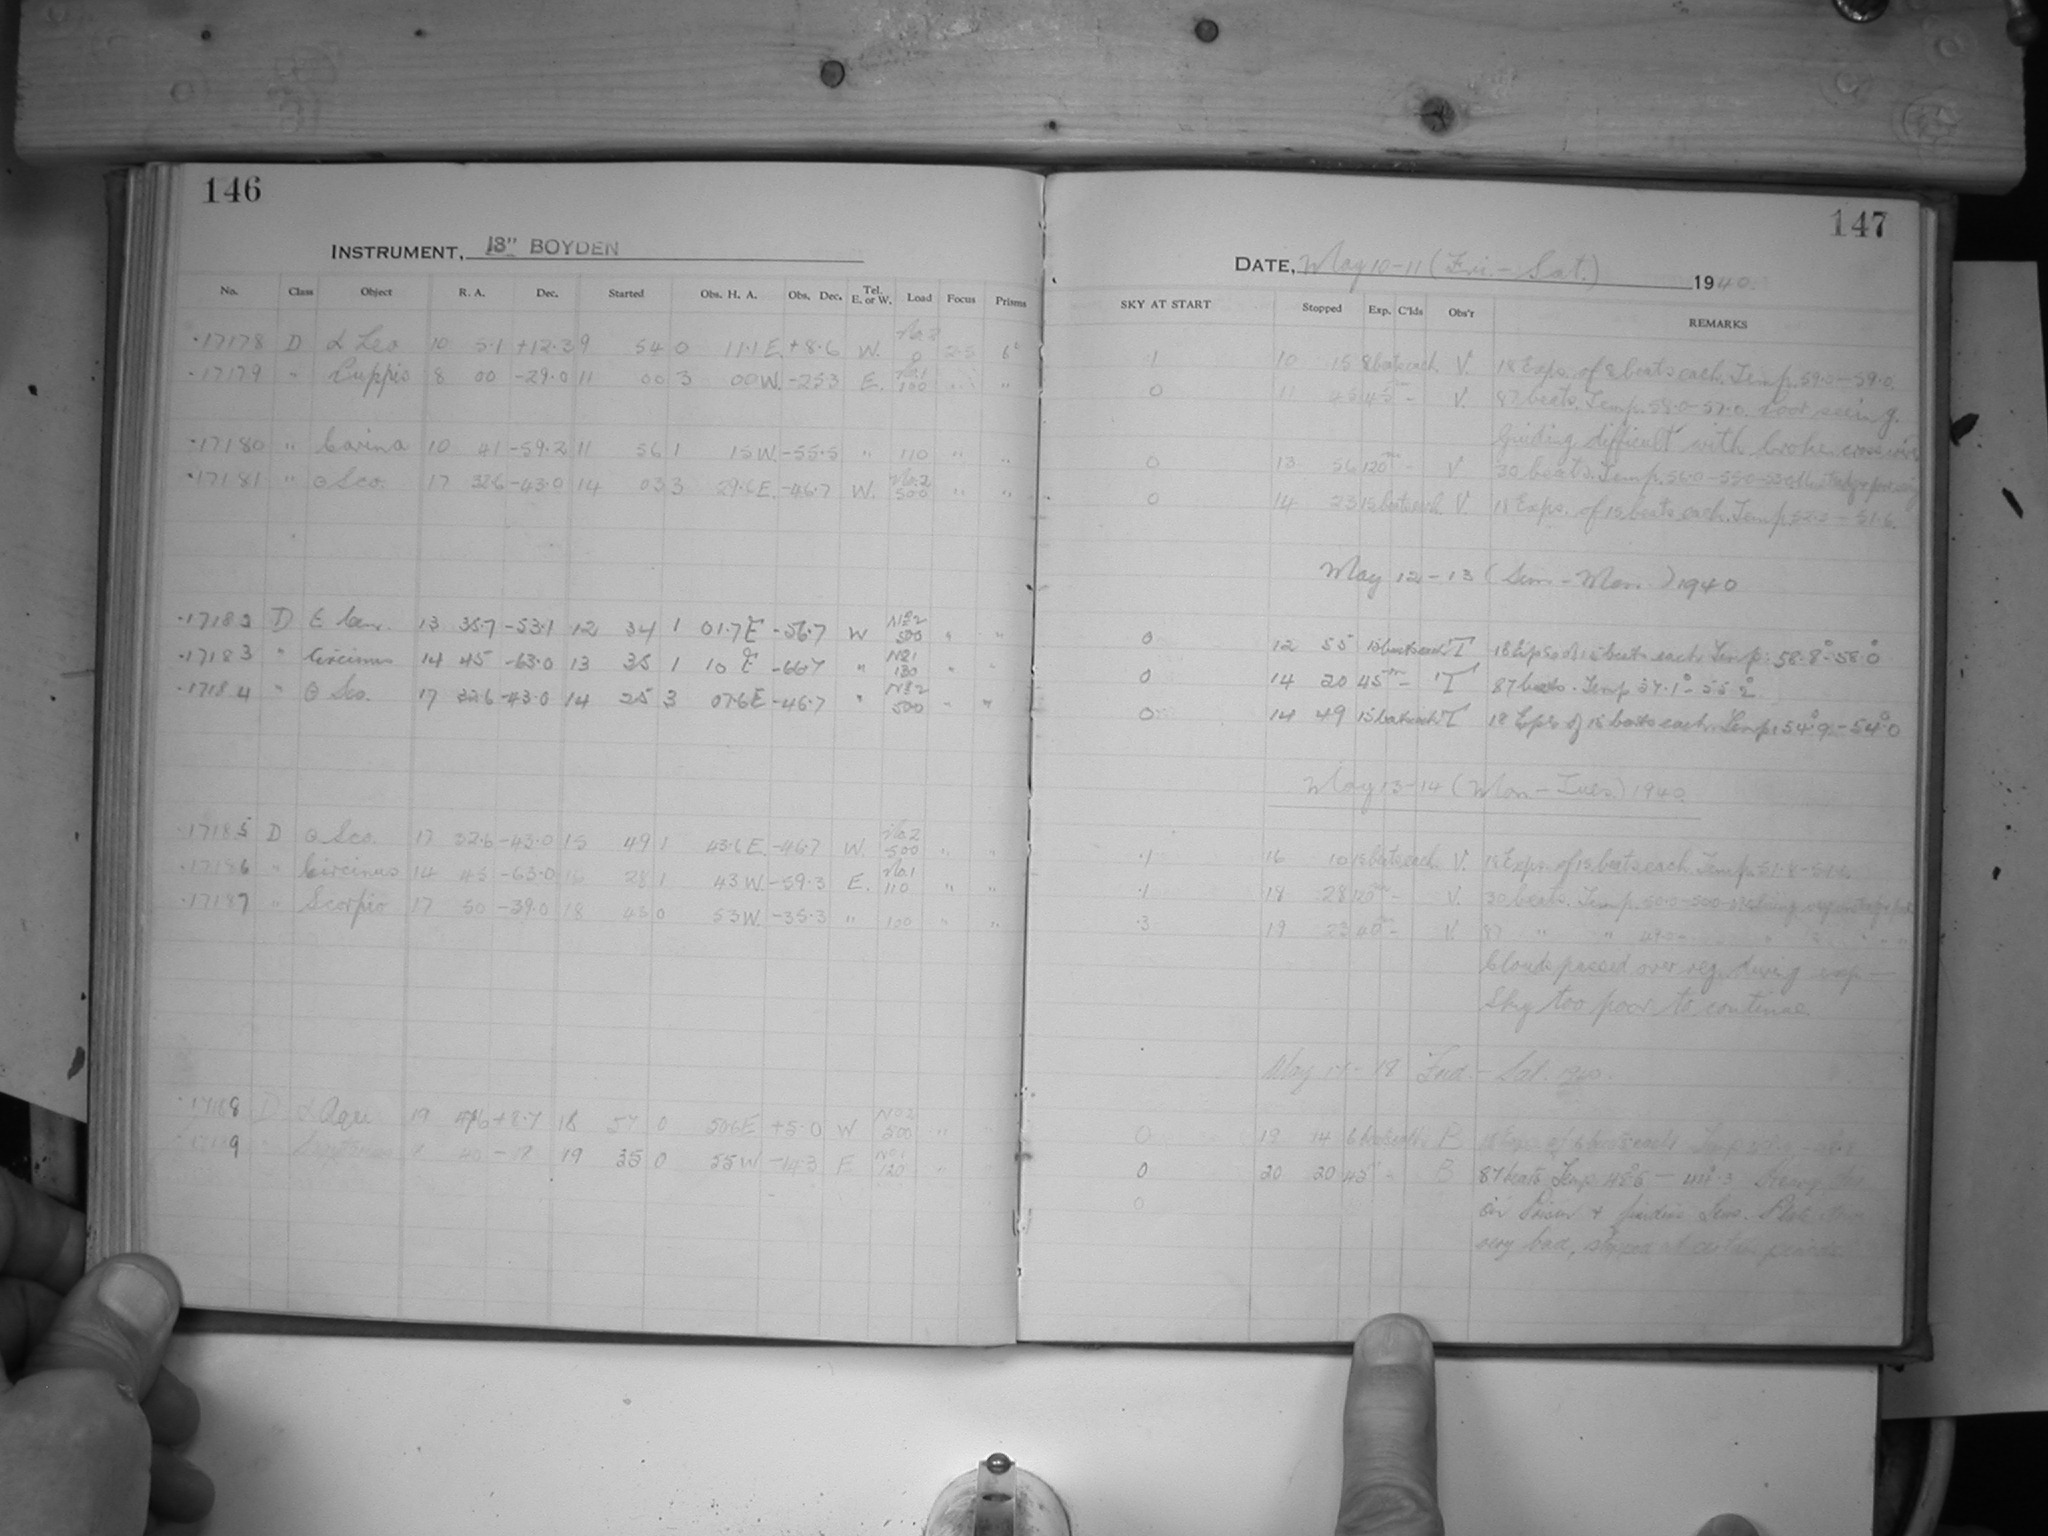 146
INSTRUMENT, 13" BOYDEN
No. Class Object R. A. Dec. Started Obs. H. A. Obs. Dec. Tel. E. or W. Load Focus Prisms
17178 D α Leo 10 5.1 +12.3 9 54 0 11.1 E. +8.6 W.
17179 " Puppis 8 00 -29.0 11 00 3 00 W. -25.3 E. No.1 100 " "
17180 " Carina 10 41 -59.2 11 56 1 15 W. -55.5 " 110 " "
17181 " θ Sco. 17 32.6 -43.0 14 03 3 29.6 E. -46.7 W. No.2 500 " "
17182 D ε Cen. 13 35.7 -53.1 12 34 1 01.7 E -56.7 W No 2 500 " "
17183 " Circinus 14 45 -63.0 13 35 1 10 E -66.7 " No 1 130 " "
17184 " θ Sco. 17 32.6 -43.0 14 25 3 07.6 E -46.7 " No 2 500 " "
17185 D θ Sco. 17 32.6 -43.0 15 49 1 43.6 E. -46.7 W. No.2 500 " "
17186 " Circinus 14 45 -63.0 16 28 1 43 W. -59.3 E. No.1 110 " "
17187 " Scorpio 17 50 -39.0 18 43 0 53 W. -35.3 " 100 " "
17188 D α Aqu 19 +8.7 18 57 0 50.6 E +5.0 W No 2 500 "
19 35 0 55 W -14.3 E No 1 120 "
147
DATE, May 10-11 (Fri. - Sat.) 1940.
SKY AT START Stopped Exp. C'lds Obs'r REMARKS
.1 10 15 8 beats each V. 18 Exps. of 8 beats each. Temp. 59.0 - 59.0.
0 11 45 45m - V. 87 beats. Temp. 58.0 - 57.0. Poor seeing.
Guiding difficult with broken cross wire
0 13 56 120m - V 30 beats. Temp. 56.0 - 55.0
0 14 23 15 beats each. V. 18 Exps. of 15 beats each. Temp. 52.2 - 51.6.
May 12-13 (Sun. - Mon.) 1940
0 12 55 15 beats each T 18 Exps of 15 beats each. Temp: 58.8° - 58.0°
0 14 20 45m - T 87 beats. Temp 57.1° - 55.2°
0 14 49 15 beats each T 18 Exps of 15 beats each. Temp: 54.9° - 54.0°
May 13-14 (Mon - Tues.) 1940.
.1 16 10 15 beats each. V. 18 Exps. of 15 beats each. Temp. 51.8 -
.1 18 28 120m - V. 30 beats. Temp. 50.2 - 50.0
.3 19 23 40m - V. 87 " " 49.0 -
Clouds passed over reg. during exp. -
Sky too poor to continue.
May 17-18 Frid. - Sat. 1940.
0 19 14 6 beats each B 18 Exps of 6 beats each Temp
0 20 20 45m - B 87 beats Temp 48.6 - 44.3 Heavy
0 on Prism + guiding Lens.
very bad, stopped at certain periods